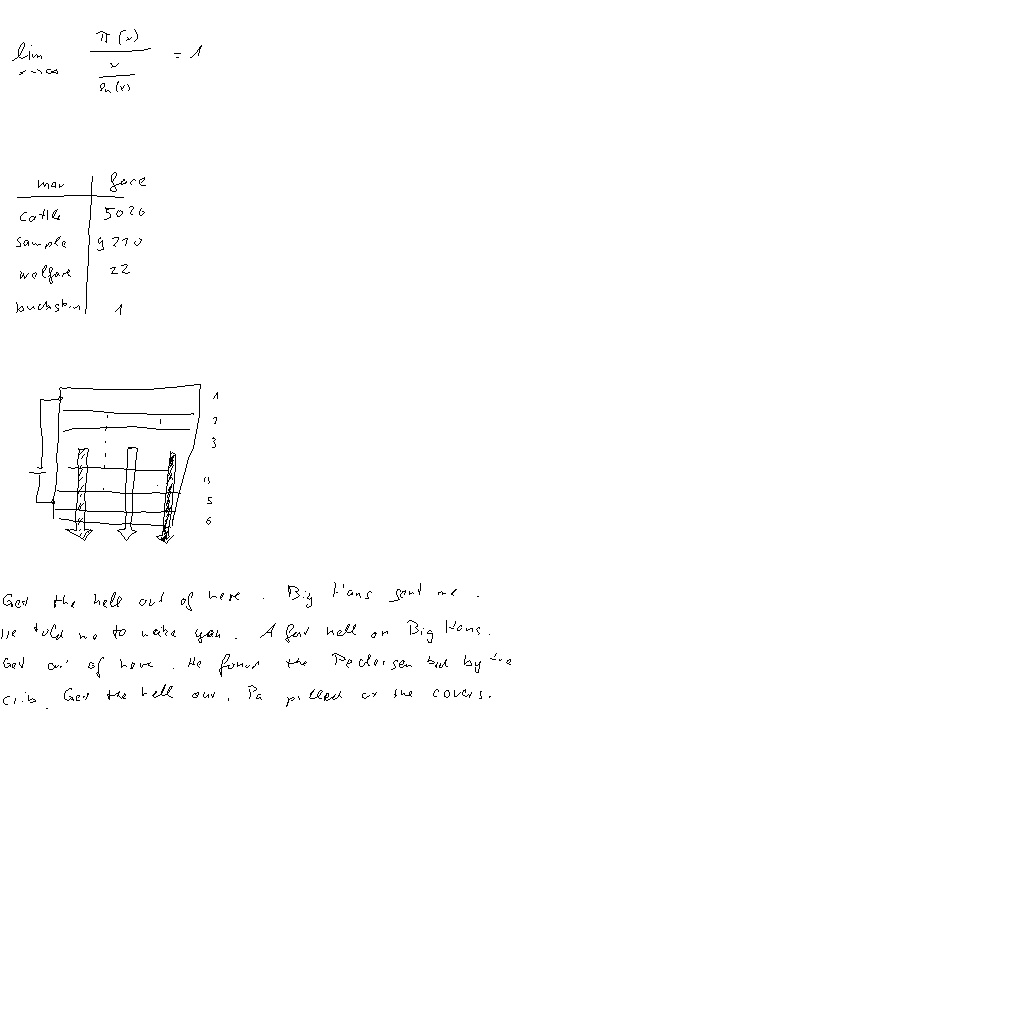 lim x→∞ π(x) / (x / ln(x)) = 1
man fare
cattle 5020
sample 9210
welfare 22
buckskin 1
1
2
3
4
5
6
Get the hell out of here. Big Hans sent me.
He told me to wake you. A fat hell on Big Hans.
Get out of here. He found the Pedersen kid by the
crib. Get the hell out. Pa pulled at the covers.